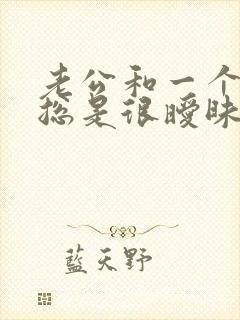 老公和一个
总是很暧昧
藍天野